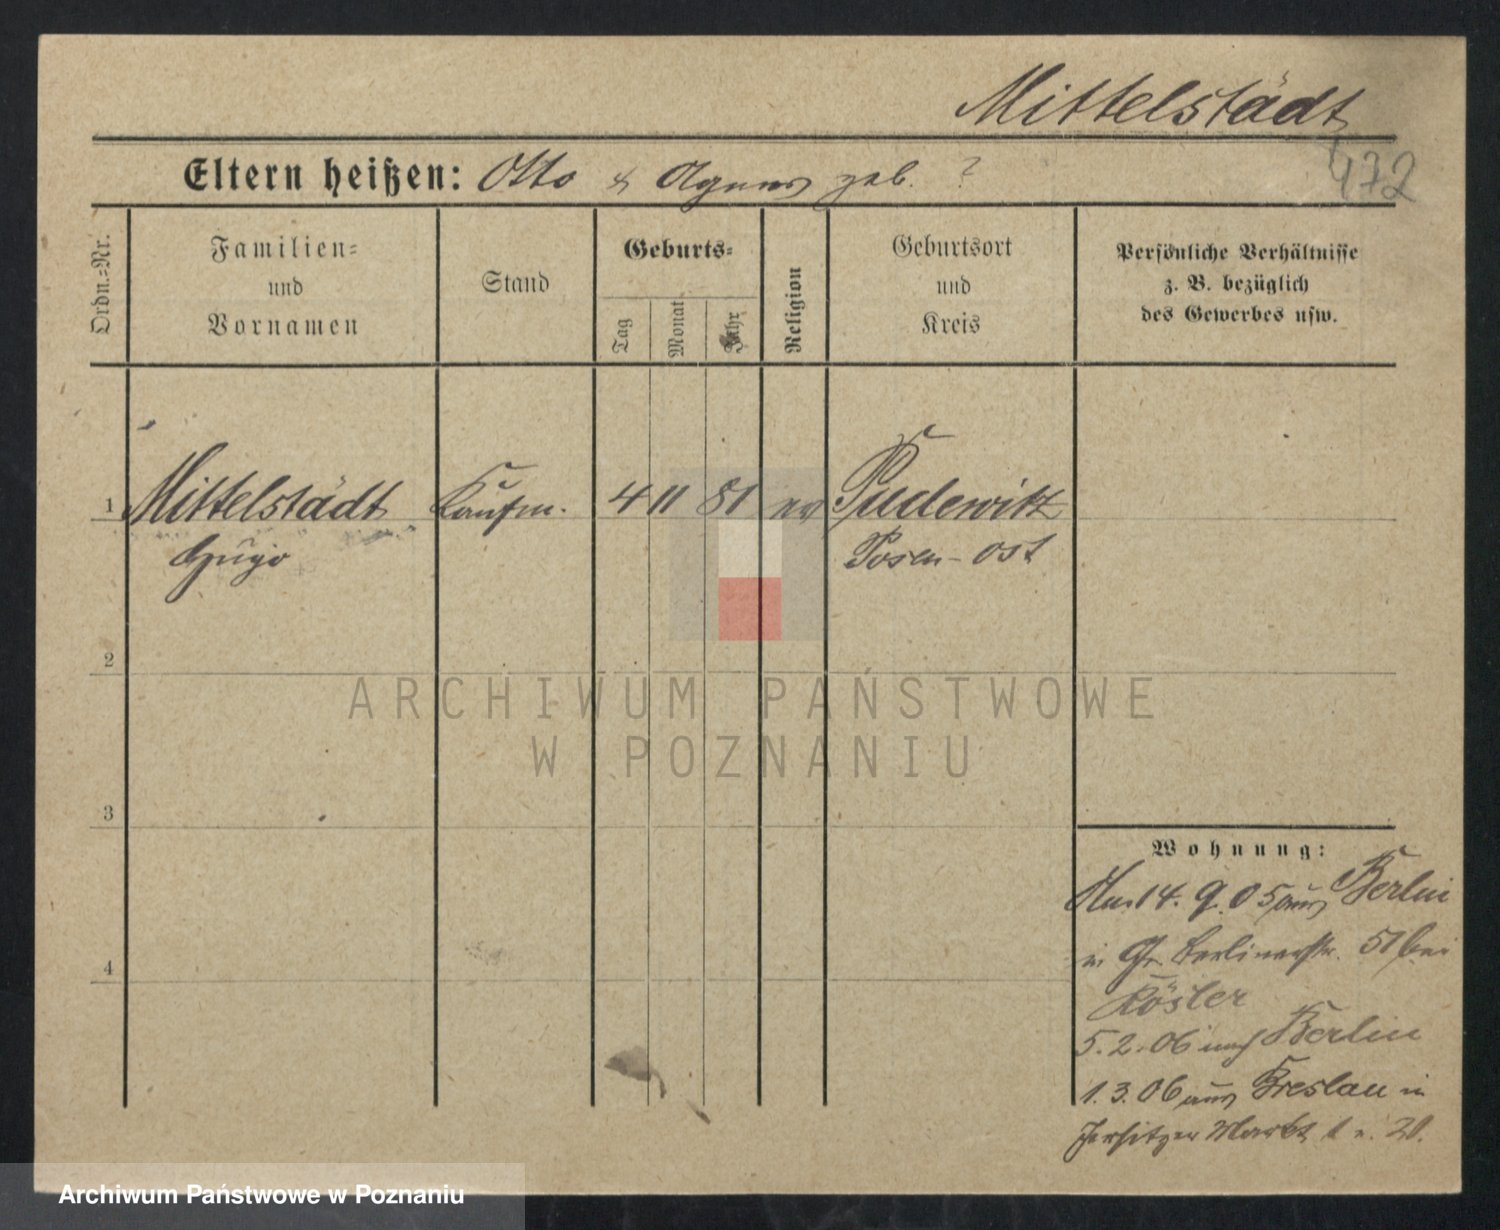 Mittelstädt
472
Eltern heißen: Otto & Agnes geb. ?
Ordn.=Nr.
Familien=
und
Vornamen
Stand
Geburts=
Tag
Monat
Jahr
Religion
Geburtsort
und
Kreis
Persönliche Verhältnisse
z. B. bezüglich
des Gewerbes usw.
1 Mittelstädt Kaufm. 4 11 81 ev Pudewitz
Hugo Posen-Ost
2
3
4
ARCHIWUM PAŃSTWOWE
W POZNANIU
Wohnung:
14. 9. 05 aus Berlin
in Gr. Berlinerstr. 51 bei
Rösler
5. 2. 06 nach Berlin
1. 3. 06 aus Breslau in
Jersitzer Markt 1
Archiwum Państwowe w Poznaniu